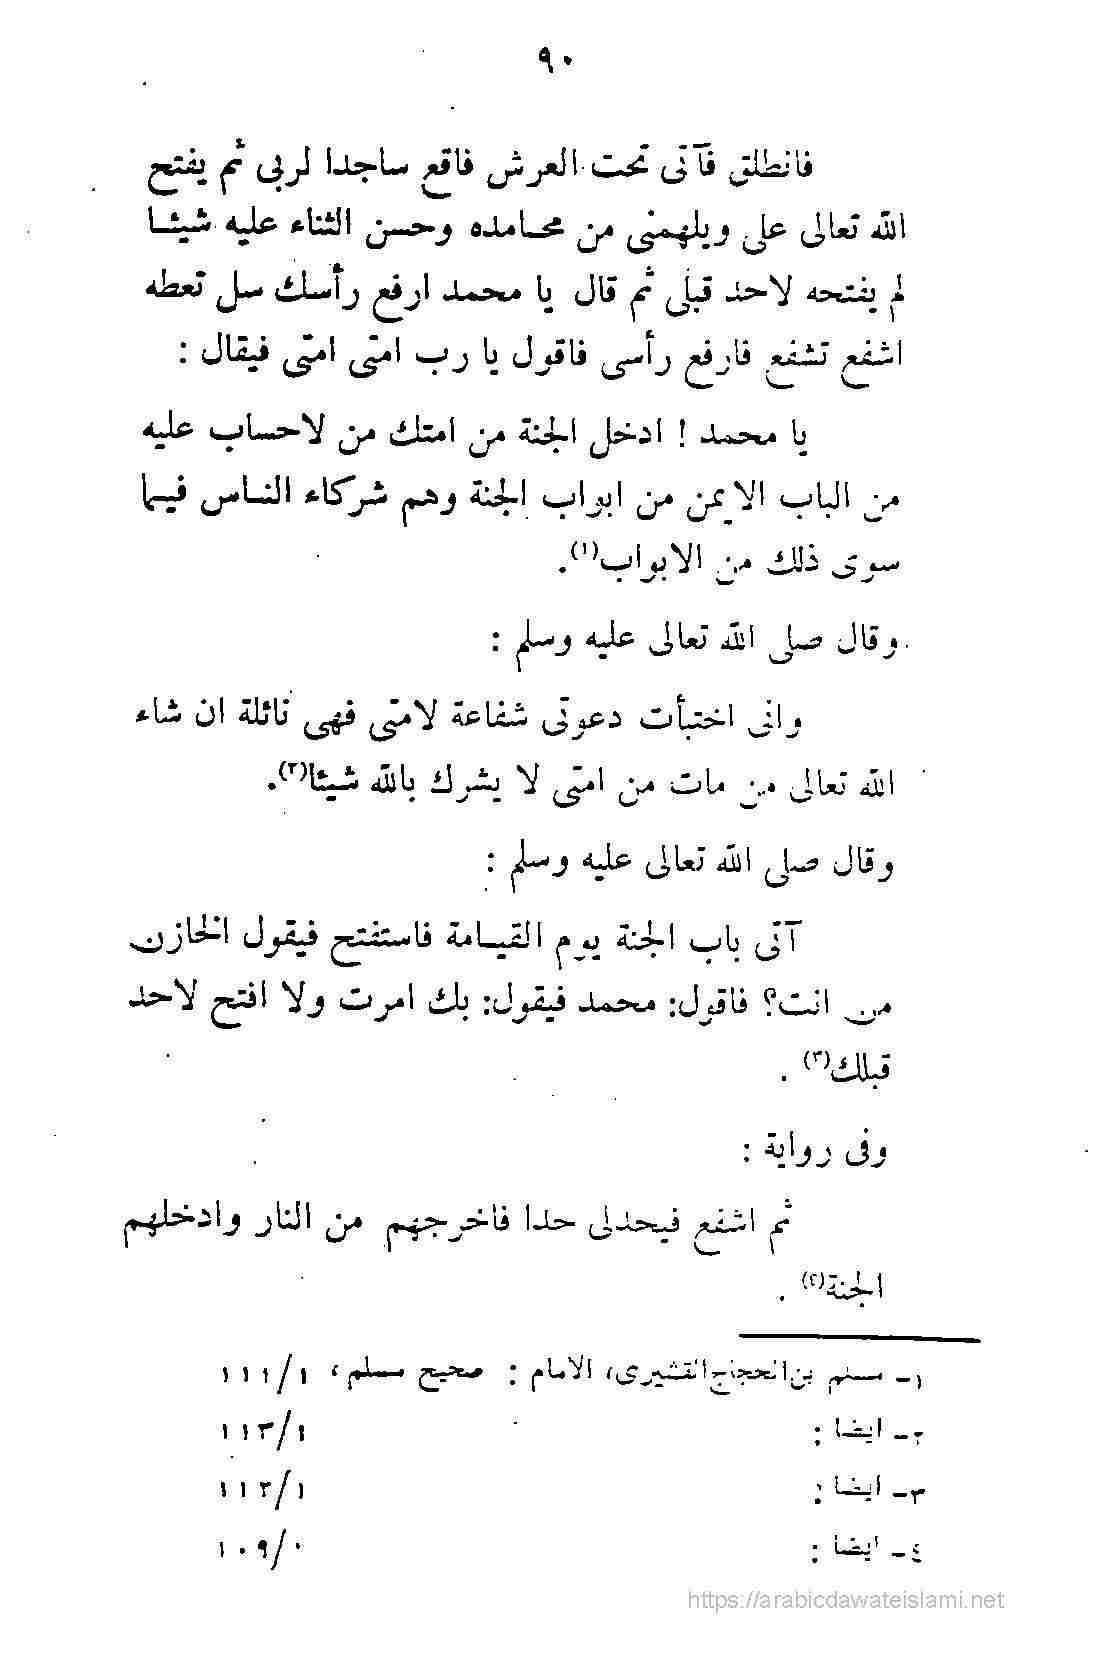 ٩٠
فانطلق فآتى تحت العرش فاقع ساجدا لربى ثم يفتح
الله تعالى على ويلهمنى من محامده وحسن الثناء عليه شيئا
لم يفتحه لاحد قبلى ثم قال يا محمد ارفع رأسك سل تعطه
اشفع تشفع فارفع رأسى فاقول يا رب امتى امتى فيقال :
يا محمد ! ادخل الجنة من امتك من لاحساب عليه
من الباب الايمن من ابواب الجنة وهم شركاء الناس فيما
سوى ذلك من الابواب(١).
وقال صلى الله تعالى عليه وسلم :
وانى اختبأت دعوتى شفاعة لامتى فهى نائلة ان شاء
الله تعالى من مات من امتى لا يشرك بالله شيئا(٢).
وقال صلى الله تعالى عليه وسلم :
آتى باب الجنة يوم القيامة فاستفتح فيقول الخازن
من انت؟ فاقول: محمد فيقول: بك امرت ولا افتح لاحد
قبلك(٣) .
وفى رواية :
ثم اشفع فيحدلى حدا فاخرجهم من النار وادخلهم
الجنة(٤) .
١- مسلم بن الحجاج القشيرى، الامام : صحيح مسلم ، ١/ ١١١
٢- ايضا : ١/ ١١٣
٣- ايضا : ١/ ١١٢
٤- ايضا : ٠/ ١٠٩
https://arabicdawateislami.net